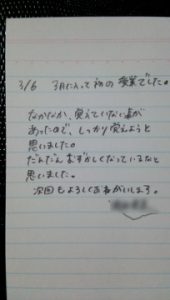 3/6 3月に入って初の授業でした。
なかなか、覚えていない事が
あったので、しっかり覚えようと
思いました。
だんだんむずかしくなっているなと
思いました。
次回もよろしくおねがいします。